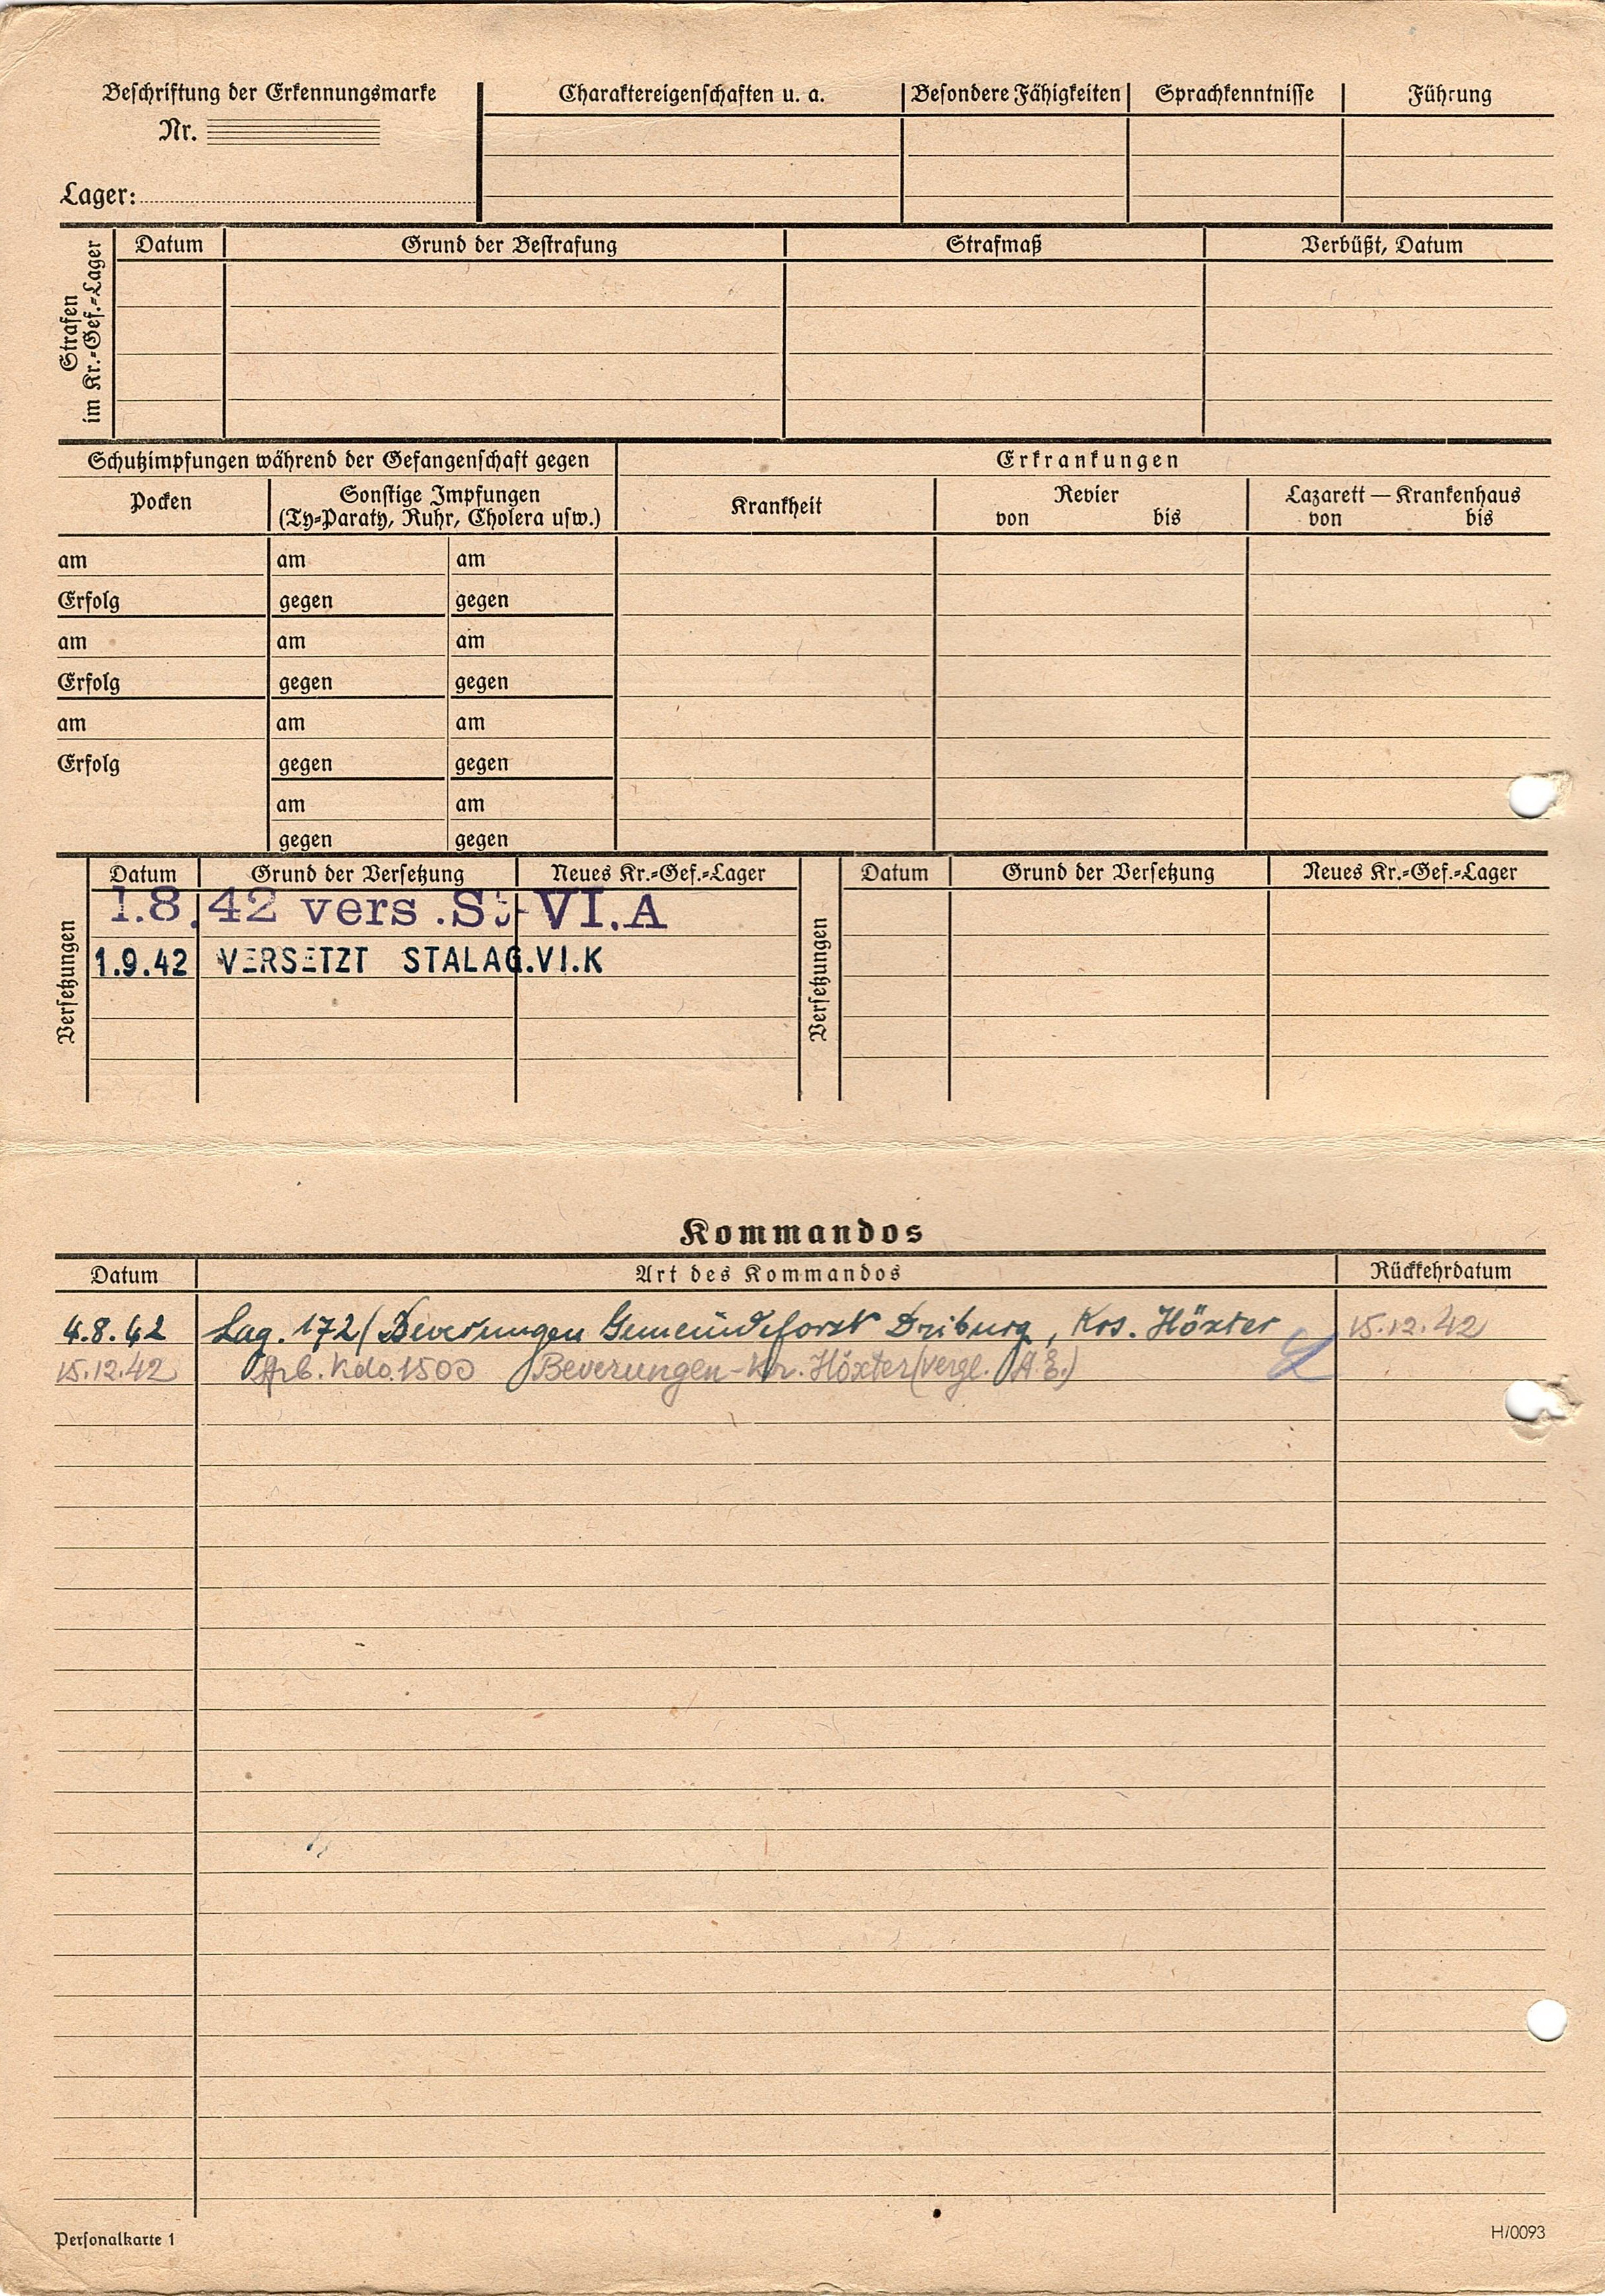 Beschriftung der Erkennungsmarke
Nr.
Lager:
Charaktereigenschaften u. a. Besondere Fähigkeiten Sprachkenntnisse Führung
Strafen
im Kr.-Gef.-Lager
Datum Grund der Bestrafung Strafmaß Verbüßt, Datum
Schutzimpfungen während der Gefangenschaft gegen Erkrankungen
Pocken
Sonstige Impfungen
(Ty-Paraty, Ruhr, Cholera usw.)
Krankheit
Revier
von bis
Lazarett — Krankenhaus
von bis
am am am
Erfolg gegen gegen
am am am
Erfolg gegen gegen
am am am
Erfolg gegen gegen
am am
gegen gegen
Versetzungen
Datum Grund der Versetzung Neues Kr.-Gef.-Lager
1.8.42 vers. St VI.A
1.9.42 VERSETZT STALAG.VI.K
Versetzungen
Datum Grund der Versetzung Neues Kr.-Gef.-Lager
Kommandos
Datum Art des Kommandos Rückkehrdatum
4.8.42 Lag. 172/ Beverungen Gemeindeforst Driburg, Krs. Höxter 15.12.42
15.12.42 Arb. Kdo. 1500 Beverungen-Kr. Höxter (vergl. A.E.)
Personalkarte 1
H/0093